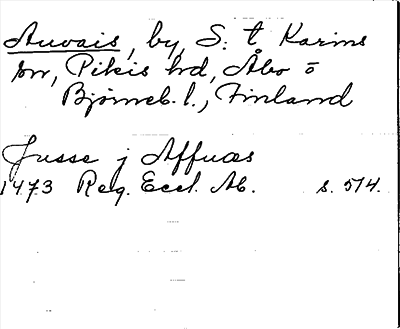 Auvais, by, S. t Karins
sn, Pikis hd, Åbo o
Björneb. l., Finland
Jusse j Affuas
1473 Reg. Eccl. Ab. s. 514.